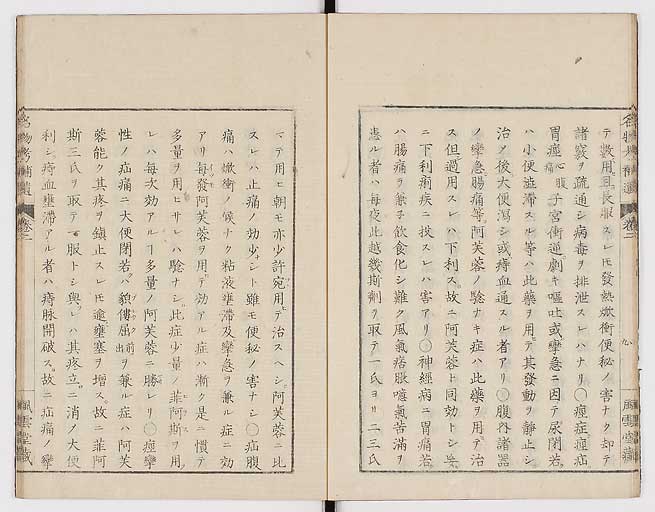 名物考補遺
卷三
九
風雲堂藏
テ數用且長服スレモ發熱焮衝便秘ノ害ナク却テ
諸竅ヲ疏通シ病毒ヲ排泄スレハナリ○痙症痙疝
胃痙心腹痛子宮衝逆劇キ嘔吐或攣急ニ因テ尿閉若
ハ小便澁滯スル等ハ此藥ヲ用テ其發動ヲ靜止シ
治メ後大便瀉シ或痔血通スル者アリ○腹內諸器
ノ攣急腸痛等阿芙蓉ノ驗ナキ症ハ此藥ヲ用テ治
ス但過用スレハ下利ス故ニ阿芙蓉ト同効トシ
ニ下利痢疾ニ投スレハ害アリ○神經病ニ胃痛若
ハ腸痛ヲ兼子飲食化シ難ク風氣痞脹噫氣苦滿ヲ
患ル者ハ每夜此越幾斯劑ヲ取テ一氏ヨリ二三氏
マテ用ヒ朝モ亦少許宛用テ治スヘシ阿芙蓉ニ比
スレハ止痛ノ効少シト雖モ便秘ノ害ナシ○疝腹
痛ハ焮衝ノ候ナク粘液壅滯及攣急ヲ兼ル症ニ効
アリ每發阿芙蓉ヲ用テ効アル症ハ漸ク是ニ慣テ
多量ヲ用ヒサレハ驗ナシ此症少量ノ菲阿斯ヲ用
レハ每次効アル丁多量ノ阿芙蓉ニ勝レリ○痙攣
性ノ疝痛ニ大便閉若ハ貌傳屈前出ヲ兼ル症ハ阿芙
蓉能ク其疼ヲ鎮止スレモ逾壅塞ヲ增ス故ニ菲阿
斯三氏ヲ取テ一服トシ與レハ其疼立ニ消ノ大便
利シ痔血壅滯アル者ハ痔脉開破ス故ニ疝痛ノ攣
名物考補遺
卷三
風雲堂藏